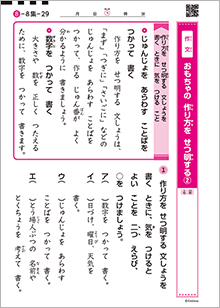 8-8集-29
月 日 時 分
作文
おもちゃの 作り方を せつ明する②
名前
作り方を せつ明する 文しょうを
書く ときに 気を つける こと
●じゅんじょを あらわす ことばを
つかって 書く
作り方を せつ明する 文しょうは、
「まず」「つぎに」「さいごに」などの
じゅんじょを あらわす ことばを
つかって 作る じゅん番が よく
分かるように 書きましょう。
●数字を つかって 書く
大きさや 数を 正しく つたえる
ために、数字を つかって 書きます。
1 作り方を せつ明する 文しょうを
書く ときに、気を つけると
よい ことを 二つ えらび、
○を つけましょう。
ア( )数字を つかう。
イ( )日づけ、曜日、天気を
書く。
ウ( )じゅんじょを あらわす
ことばを つかう。
エ( )とう場人ぶつの 名前や
とくちょうを 考えて 書く。